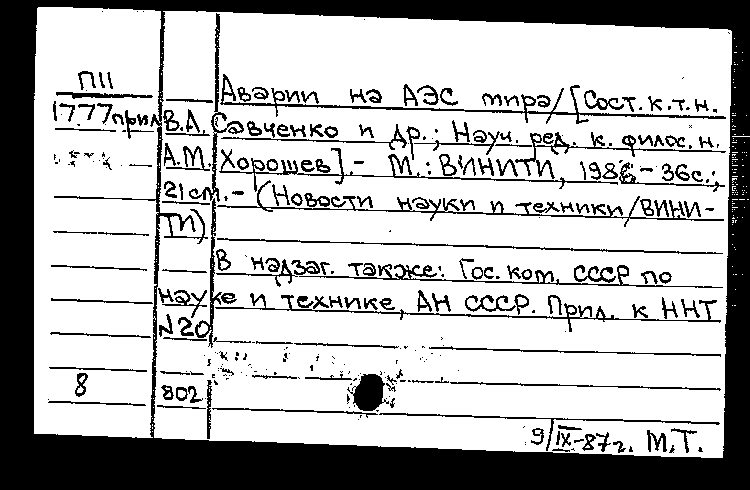 П11
1777прил
Аварии на АЭС мира/[Сост. к.т.н.
В.А. Савченко и др.; Науч. ред. к. филос. н.
А.М. Хорошев].- М.: ВИНИТИ, - 36с.;
21 см.- (Новости науки и техники/ВИНИ-
ТИ)
В надзаг. также: Гос. ком. СССР по
науке и технике, АН СССР. Прил. к ННТ
N20
8 802
9/IX-87г. М.Т.